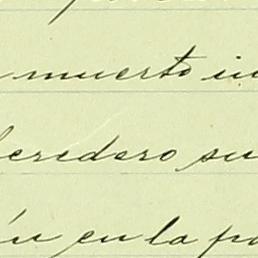 muerto in
heredero su
ún en la pa